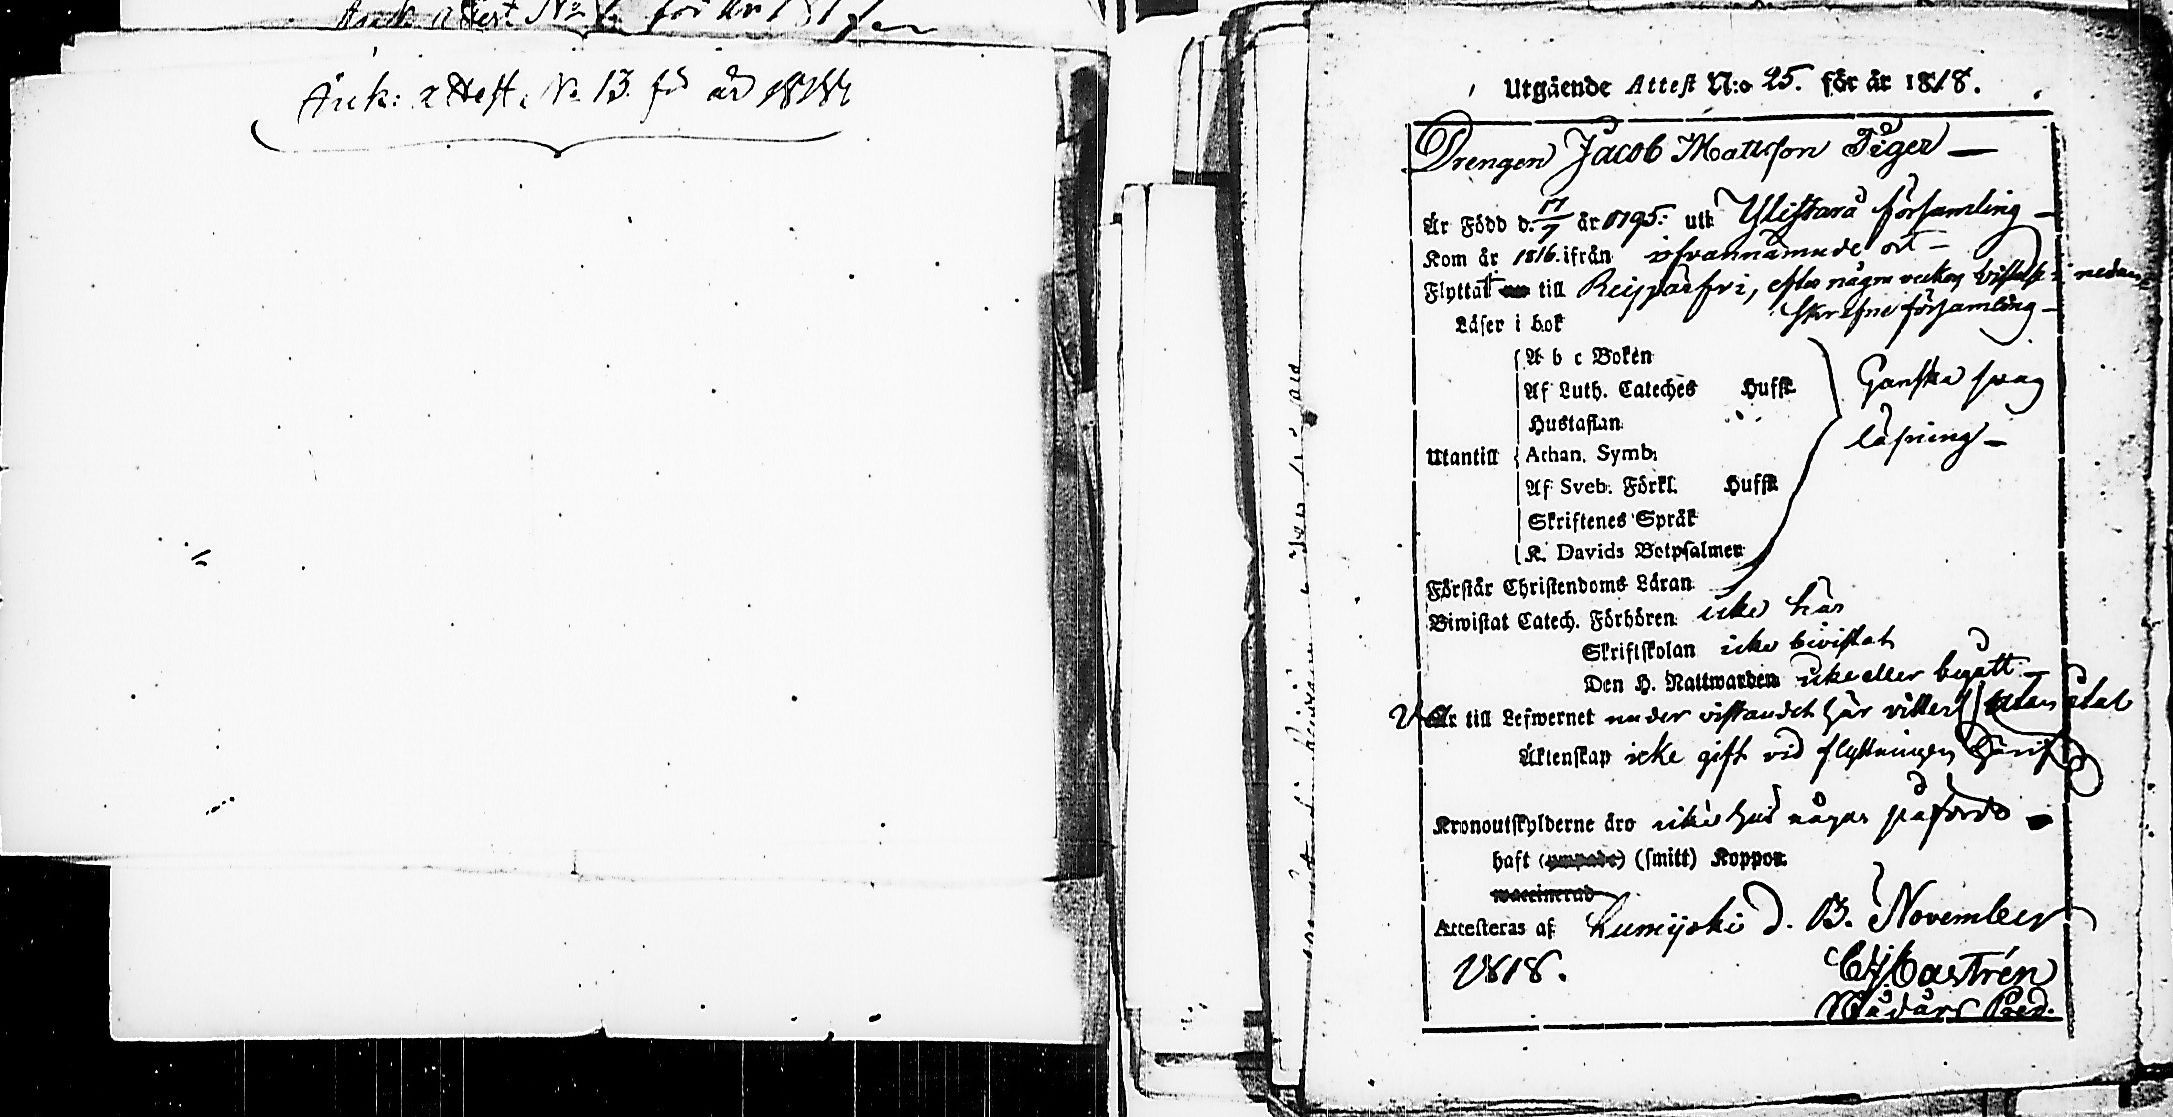 Ank: attest. No 13. för år 1818
Utgående Attest N:o 25. för år 1818.
Drengen Jacob Mattsson Tiger
Är Född d. 17/7 år 1795. uti Ylistaro församling
Kom år 1816. ifrån ofvannämnde ort
Flyttat till Reisjärfvi, efter några veckors vistelse i nedan-
skrefne församling
Läser i bok
A b c Boken
Af Luth. Cateches Hufst.
Hustaflan
Ganska svag
läsning
Utantill Athan. Symb.
Af Sveb. Förkl. Hufst.
Skriftenes Språk
K. Davids Botpsalmer
Förstår Christendoms Läran
Biwistat Catech. Förhören icke här
Skriftskolan icke bivistat
Den H. Nattwarden icke eller begått
Är till Lefwernet under vistandet här utan åtal
Äktenskap icke gift vid flyttningen härifrån
Kronoutskylderne äro icke här några påförde
haft (smitt) Koppor.
waccinerad
Attesteras af Lumijoki d. 13. November
1818.
Castrén